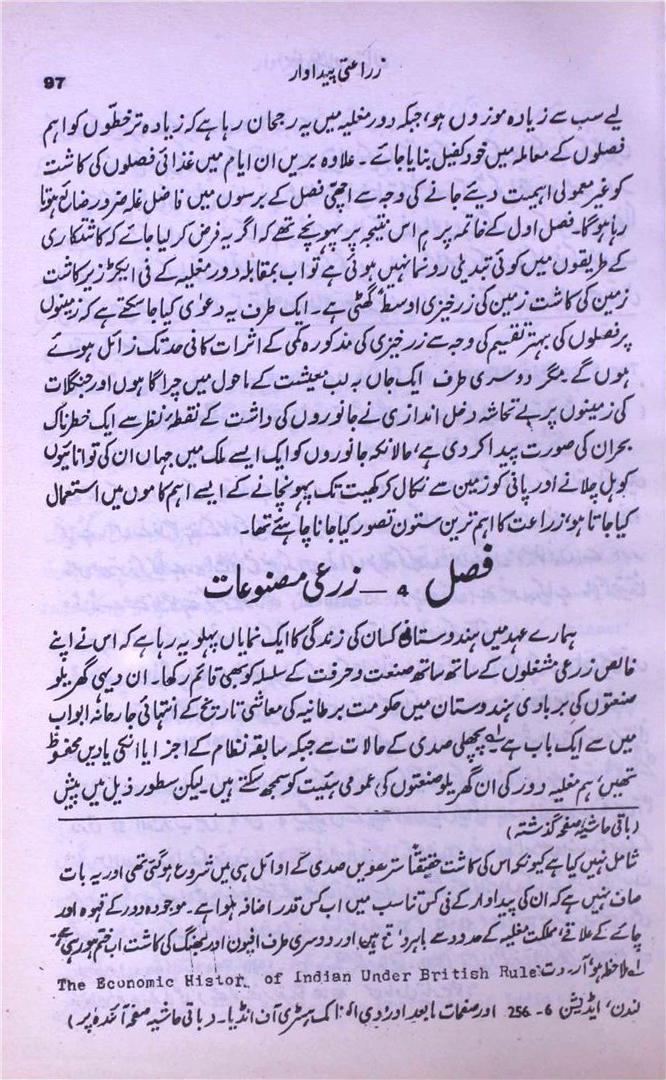 97
زراعتی پیداوار
لیے سب سے زیادہ موزوں ہو، جبکہ دور مغلیہ میں یہ رجحان رہا ہے کہ زیادہ تر خطّوں کو اہم
فصلوں کے معاملہ میں خود کفیل بنایا جائے۔ علاوہ بریں ان ایام میں غذائی فصلوں کی کاشت
کو غیر معمولی اہمیت دیئے جانے کی وجہ سے اچھی فصل کے برسوں میں فاضل غلہ ضرور ضائع ہوتا
رہا ہوگا۔ فصل اول کے خاتمہ پر ہم اس نتیجہ پر پہونچے تھے کہ اگر یہ فرض کر لیا جائے کہ کاشتکاری
کے طریقوں میں کوئی تبدیلی رونما نہیں ہوئی ہے تو اب بمقابلہ دور مغلیہ کے فی ایکڑ زیر کاشت
زمین کی کاشت زمین کی زرخیزی اوسطاً گھٹی ہے۔ ایک طرف یہ دعویٰ کیا جا سکتے ہے کہ زمینوں
پر فصلوں کی بہتر تقسیم کی وجہ سے زرخیزی کی مذکورہ کمی کے اثرات کافی حد تک زائل ہوئے
ہوں گے مگر دوسری طرف ایک جاں بہ لب معیشت کے ماحول میں چراگاہوں اور جنگلات
کی زمینوں پر بے تحاشہ دخل اندازی نے جانوروں کی داشت کے نقطۂ نظر سے ایک خطرناک
بحران کی صورت پیدا کر دی ہے، حالانکہ جانوروں کو ایک ایسے ملک میں جہاں ان کی توانائیوں
کو ہل چلانے اور پانی کو زمین سے نکال کر کھیت تک پہونچانے کے ایسے اہم کاموں میں استعمال
کیا جاتا ہو، زراعت کا اہم ترین ستون تصور کیا جانا چاہئے تھا۔
فصل 4 ـ زرعی مصنوعات
ہمارے عہد میں ہندوستانی کسان کی زندگی کا ایک نمایاں پہلو یہ رہا ہے کہ اس نے اپنے
خالص زرعی مشغلوں کے ساتھ ساتھ صنعت و حرفت کے سلسلہ کو بھی قائم رکھا۔ ان دیہی گھریلو
صنعتوں کی بربادی ہندوستان میں حکومت برطانیہ کی معاشی تاریخ کے انتہائی جارحانہ ابواب
میں سے ایک باب ہے۔ پچھلی صدی کے حالات سے جبکہ سابقہ نظام کے اجزا یا انکی یادیں محفوظ
تھیں، ہم مغلیہ دور کی ان گھریلو صنعتوں کی عمومی ہیئیت کو سمجھ سکتے ہیں۔ لیکن سطور ذیل میں پیش
(باقی حاشیہ صفحہ گذشتہ)
شامل نہیں کیا ہے کیونکہ اس کی کاشت حقیقتاً سترھویں صدی کے اوائل ہی میں شروع ہو گئی تھی اور یہ بات
صاف نہیں ہے کہ ان کی پیداوار کے فی کس تناسب میں اب کس قدر اضافہ ہوا ہے۔ موجودہ دور کے قہوہ اور
چائے کے علاقے، مملکت مغلیہ کے حدود سے باہر واقع ہیں اور دوسری طرف افیون اور بھنگ کی کاشت اب ختم ہو رہی ہے۔
ملاحظہ ہو، آر۔ دت: The Economic Histor of Indian Under British Rule
لندن، ایڈیشن 6-256 اور صفحات مابعد اور ڈی، اکنامک ہسٹری آف انڈیا۔ (باقی حاشیہ صفحہ آئندہ پر)